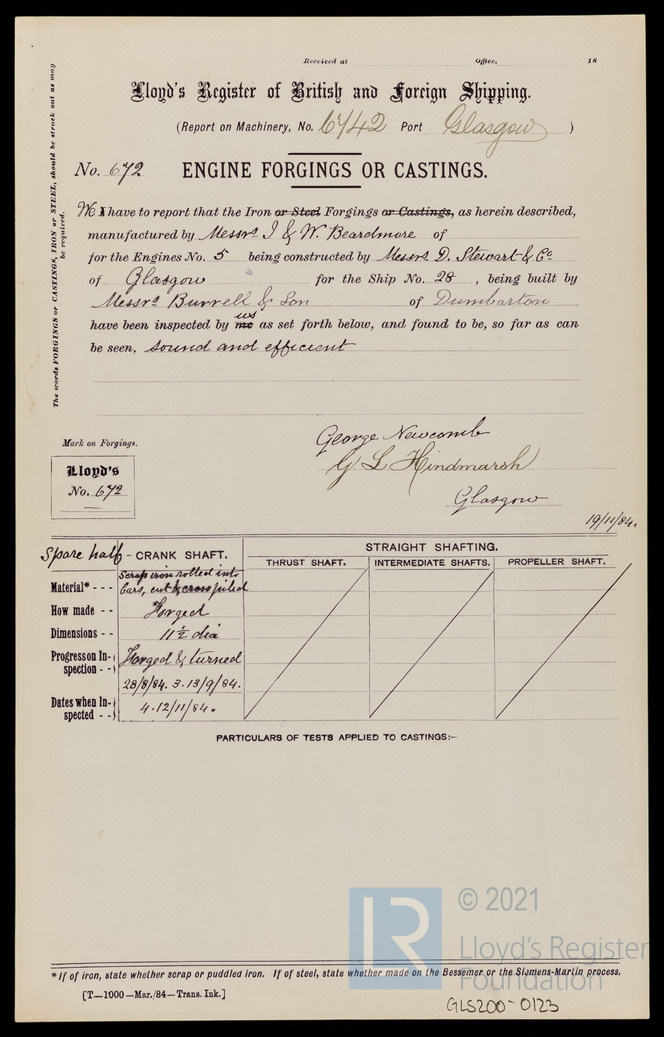 Received at Office, 18
Lloyd's Register of British and Foreign Shipping.
(Report on Machinery, No. 6742 Port Glasgow )
No. 672 ENGINE FORGINGS OR CASTINGS.
We I have to report that the Iron or Steel Forgings or Castings, as herein described,
manufactured by Messrs I & W. Beardmore of
for the Engines No. 5 being constructed by Messrs D. Stewart & Co
of Glasgow for the Ship No. 28, being built by
Messrs Burrell & Son of Dumbarton
us
have been inspected by me as set forth below, and found to be, so far as can
be seen, sound and efficient
The words FORGINGS or CASTINGS, IRON or STEEL, should be struck out as may
be required.
George Newcomb
G L Hindmarsh
Glasgow
19/11/84.
Mark on Forgings.
Lloyd's
No. 672
Spare half - CRANK SHAFT.
STRAIGHT SHAFTING.
THRUST SHAFT. INTERMEDIATE SHAFTS. PROPELLER SHAFT.
Material* - - - Scrap iron rolled into
bars, cut & cross piled
How made - - Forged
Dimensions - - 11½ dia
Progress on In-
spection - - Forged & turned
28/8/84. 3. 13/9/84.
Dates when In-
spected - - 4. 12/11/84.
PARTICULARS OF TESTS APPLIED TO CASTINGS:-
LR © 2021
Lloyd's Register
Foundation
*If of iron, state whether scrap or puddled iron. If of steel, state whether made on the Bessemer or the Siemens-Martin process.
[T—1000—Mar./84—Trans. Ink.]
GLS200-0123